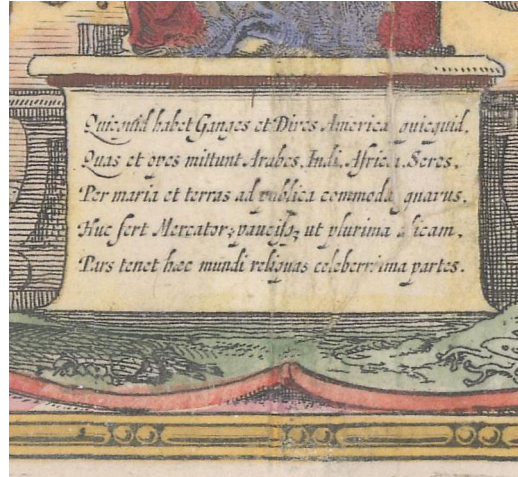 Quicquid habet Ganges et Dives America quicquid,
Quas et opes mittunt Arabes, Indi, Africa, Seres,
Per maria et terras ad publica commoda gnarus,
Huc fert Mercator; paucisq; ut plurima dicam,
Pars tenet hæc mundi reliquas celeberrima partes.